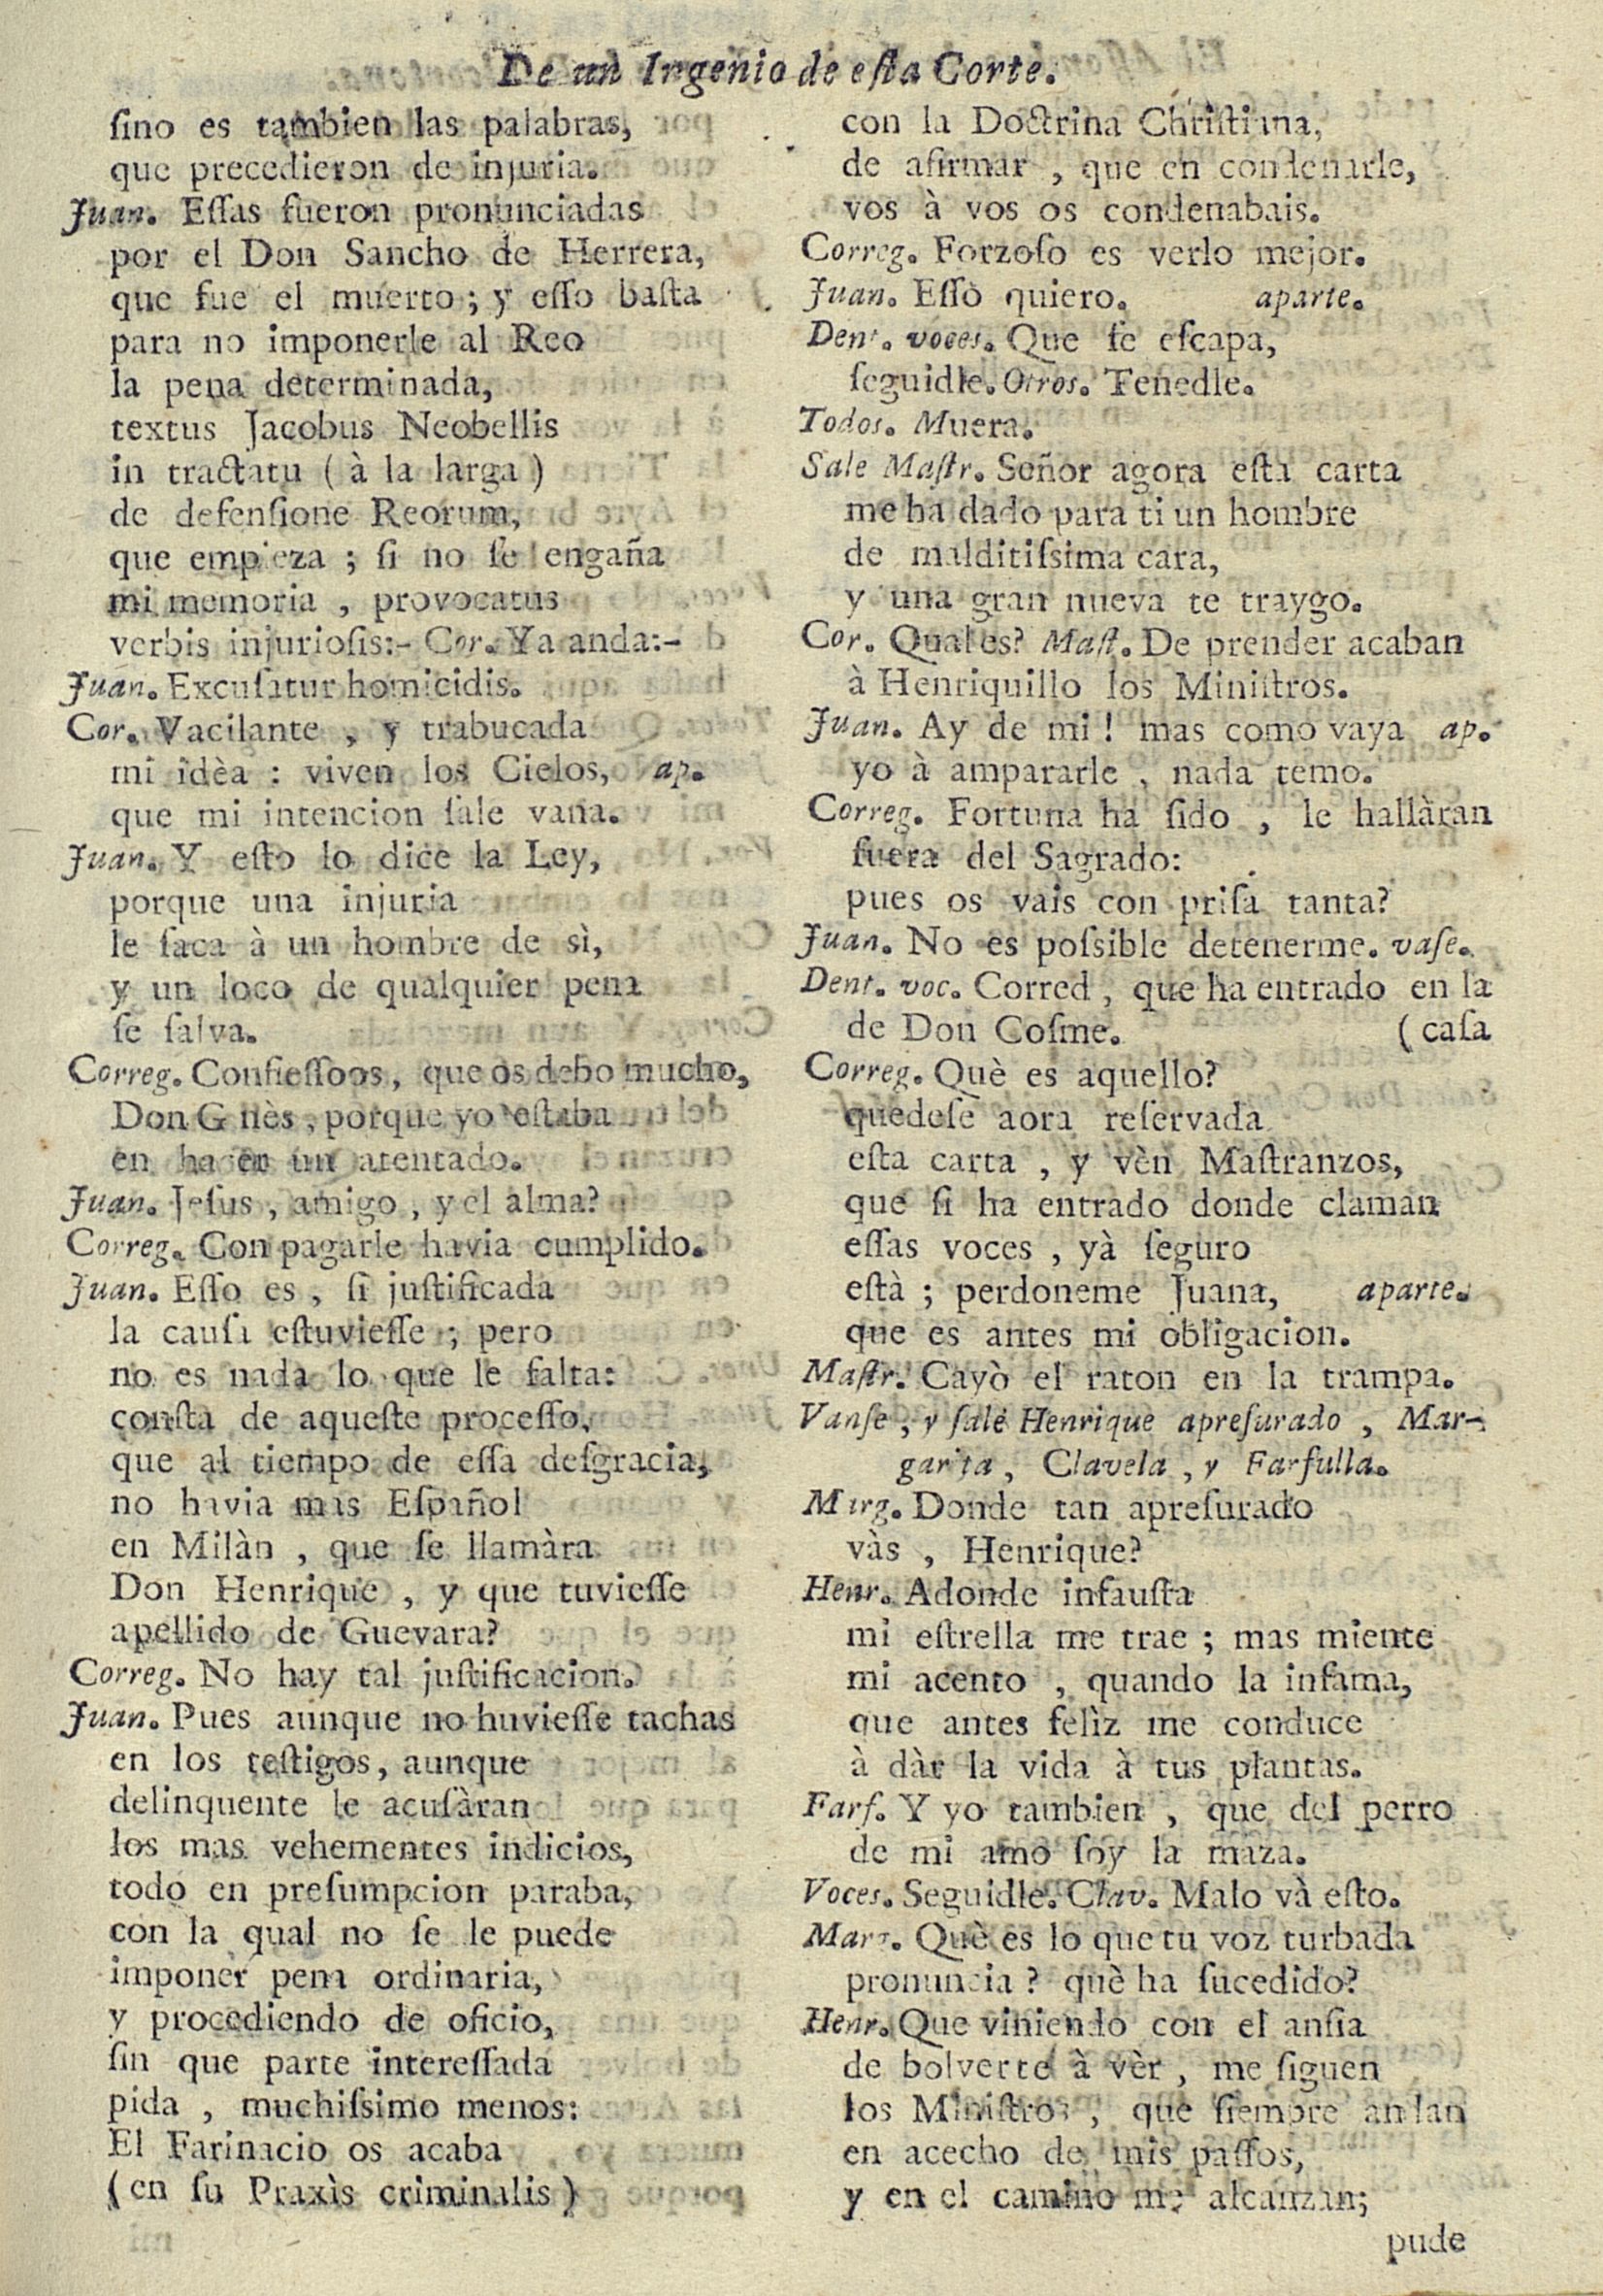 De un Ingenio de eſta Corte.
ſino es tambien las palabras,
que precedieron de injuria.
Juan. Eſſas fueron pronunciadas
por el Don Sancho de Herrera,
que fue el muerto ; y eſſo baſta
para no imponerle al Reo
la pena determinada,
textus Jacobus Neobellis
in tractatu ( à la larga )
de defenſione Reorum,
que empieza ; ſi no ſe engaña
mi memoria , provocatus
verbis injurioſis:- Cor. Ya anda:-
Juan. Excuſatur homicidis.
Cor. Vacilante , y trabucada
mi idèa : viven los Cielos, ap.
que mi intencion ſale vana.
Juan. Y eſto lo dice la Ley,
porque una injuria
le ſaca à un hombre de sì,
y un loco de qualquier pena
ſe ſalva.
Correg. Confieſſoos, que os debo mucho,
Don G nès, porque yo eſtaba
en hacer un atentado.
Juan. Jeſus , amigo , y el alma?
Correg. Con pagarle havia cumplido.
Juan. Eſſo es , ſi juſtificada
la cauſa eſtuvieſſe ; pero
no es nada lo que le falta:
conſta de aqueſte proceſſo,
que al tiempo de eſſa deſgracia,
no havia mas Eſpañol
en Milàn , que ſe llamàra
Don Henrique , y que tuvieſſe
apellido de Guevara?
Correg. No hay tal juſtificacion.
Juan. Pues aunque no huvieſſe tachas
en los teſtigos, aunque
delinquente le acuſàran
los mas vehementes indicios,
todo en preſumpcion paraba,
con la qual no ſe le puede
imponer pena ordinaria,
y procediendo de oficio,
ſin que parte intereſſada
pida , muchiſsimo menos:
El Farinacio os acaba
(en ſu Praxìs criminalis)
con la Doctrina Chriſtiana,
de afirmar , que en condenarle,
vos à vos os condenabais.
Correg. Forzoſo es verlo mejor.
Juan. Eſſo quiero. aparte.
Dent. voces. Que ſe eſcapa,
ſeguidle. Otros. Tenedle.
Todos. Muera.
Sale Maſtr. Señor agora eſta carta
me ha dado para ti un hombre
de malditiſsima cara,
y una gran nueva te traygo.
Cor. Qual es? Maſt. De prender acaban
à Henriquillo los Miniſtros.
Juan. Ay de mi ! mas como vaya ap.
yo à ampararle , nada temo.
Correg. Fortuna ha ſido , le hallàran
fuera del Sagrado:
pues os vais con priſa tanta?
Juan. No es poſsible detenerme. vaſe.
Dent. voc. Corred , que ha entrado en la
de Don Coſme. (caſa
Correg. Què es aquello?
quedeſe aora reſervada
eſta carta , y vèn Maſtranzos,
que ſi ha entrado donde claman
eſſas voces , yà ſeguro
eſtà ; perdoneme Juana, aparte.
que es antes mi obligacion.
Maſtr. Cayò el raton en la trampa.
Vanſe , y ſale Henrique apreſurado , Mar-
garita , Clavela , y Farfulla.
Marg. Donde tan apreſurado
vàs , Henrique?
Henr. Adonde infauſta
mi eſtrella me trae ; mas miente
mi acento , quando la infama,
que antes felìz me conduce
à dàr la vida à tus plantas.
Farf. Y yo tambien , que del perro
de mi amo ſoy la maza.
Voces. Seguidle. Clav. Malo và eſto.
Marg. Què es lo que tu voz turbada
pronuncia ? què ha ſucedido?
Henr. Que viniendo con el anſia
de bolverte à vèr , me ſiguen
los Miniſtros , que ſiempre andan
en acecho de mis paſſos,
y en el camino me alcanzan;
pude